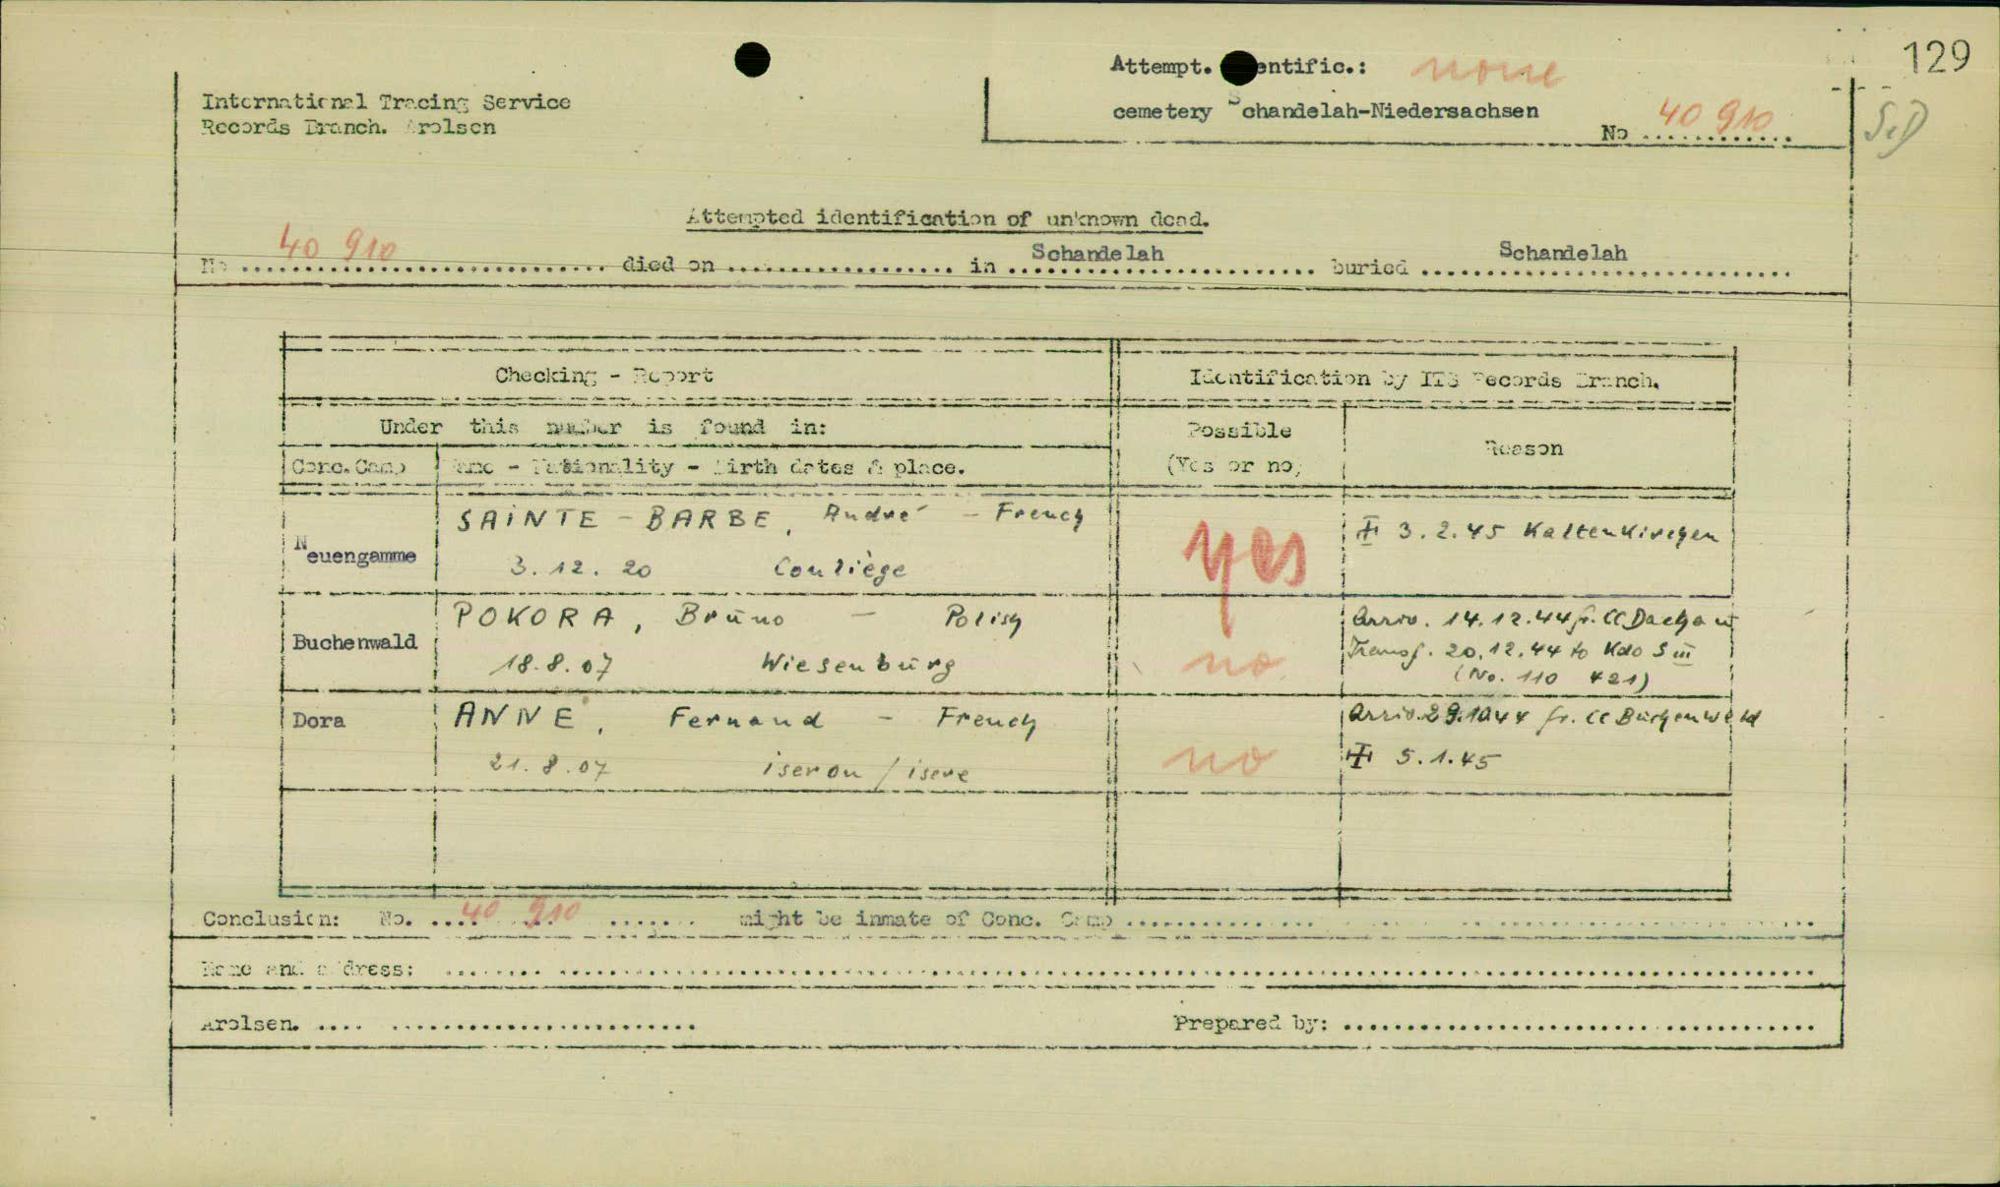 129
Attempt. entific.: none
International Tracing Service
Records Branch. Arolsen
cemetery Schandelah-Niedersachsen
No 40 910
Attempted identification of unknown dead.
No 40 910 died on in Schandelah buried Schandelah
Checking - Report
Identification by ITS Records Branch.
Under this number is found in:
Possible
(Yes or no)
Reason
Conc.Camp
Name - Nationality - Birth dates & place.
Neuengamme
SAINTE - BARBE, André - French
3. 12. 20 Conliège
yes
3. 2. 45 Kaltenkirchen
Buchenwald
POKORA, Bruno - Polish
18. 8. 07 Wiesenburg
no
Arriv. 14.12.44 fr. CC Dachau
Transf. 20.12.44 to Kdo S III
(No. 110 421)
Dora
ANNE, Fernand - French
21. 8. 07 iseron / isere
no
Arriv. 29.10 44 fr. CC Buchenwald
5. 1. 45
Conclusion: No. 40 910 might be inmate of Conc. Camp
Name and address:
Arolsen.
Prepared by: